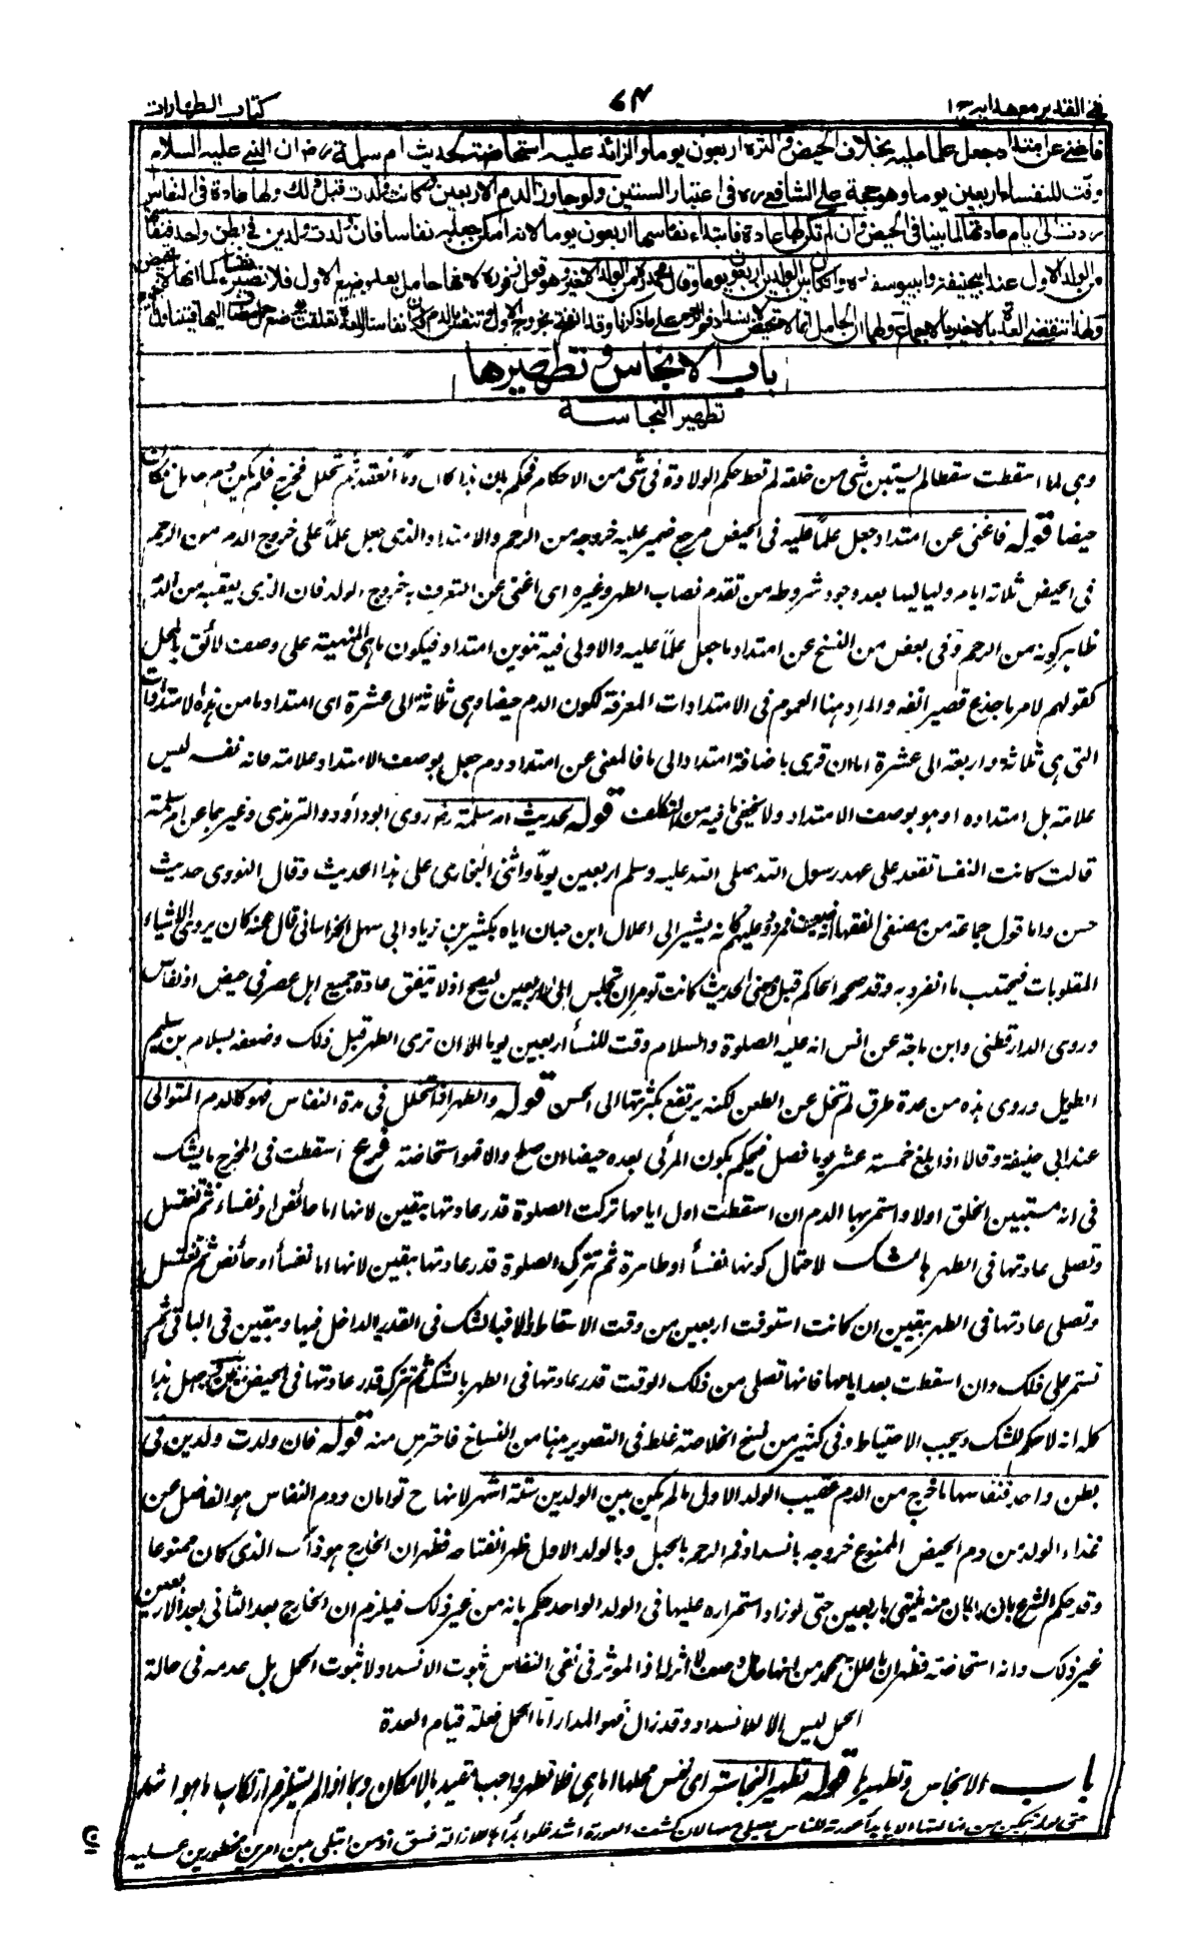 فتح القدير مع هدايه ج ١
٧٤
كتاب الطهارات
فاغنى عن امتداد جعل علما عليه بخلاف الحيض واكثره اربعون يوما والزائد عليه استحاضة لحديث ام سلمة رض ان النبى عليه السلام
وقت للنفساء اربعين يوما وهو حجة على الشافعى ره فى اعتبار الستين ولو جاوز الدم الاربعين وكانت ولدت قبل ذلك ولها عادة فى النفاس
ردت الى ايام عادتها لما بينا فى الحيض وان لم تكن لها عادة فابتداء نفاسها اربعون يوما لانه امكن جعله نفاسا فان ولدت ولدين فى بطن واحد فنفاسها
من الولد الاول عند ابيحنيفة وابيوسف ره وان كان بين الولدين اربعون يوما وقال محمد ره من الولد الاخير وهو قول زفر ره لانها حامل بعد وضع الاول فلا تصير نفساء كما انها لا تحيض
ولهذا تنقضى العدة بالاخير بالاجماع ولهما ان الحامل انما لا تحيض لانسداد فم الرحم على ما ذكرنا وقد انفتح بخروج الاول وتنفس بالدم فكان نفاسا والعدة تعلقت بوضع حمل مضاف اليها فيتناول الجميع
باب الانجاس وتطهيرها
تطهير النجاسة
وهى لما اسقطت سقطا لم يستبن شئ من خلقه لم تعط حكم الولادة فى شئ من الاحكام فحكم بان هذا كان دما انعقد ثم تحلل فخرج فلم يكن رحم حامل فكان
حيضا قوله فاغنى عن امتداد جعل علما عليه فى الحيض مرجع ضمير عليه خروجه من الرحم والامتداد الذى جعل علما على خروج الدم من الرحم
فى الحيض ثلاثة ايام ولياليها بعد وجود شروطه من تقدم نصاب الطهر وغيره اى اغنى عن التعرف به خروج الولد فان الذى يعقبه من الدم
ظاهر كونه من الرحم وفى بعض من النسخ عن امتداد ما جعل علما عليه والاولى فيه تنوين امتداد فيكون ما هى المنبهة على وصف لائق بالمحل
كقولهم لامر ما جذع قصير انفه والمراد هنا العموم فى الامتدادات المعرفة لكون الدم حيضا وهى ثلاثة الى عشرة اى امتداد ما من هذه الامتدادات
التى هى ثلاثة واربعة الى عشرة اما ان قرئ باضافة امتداد الى ما فالمعنى عن امتداد دم جعل بوصف الامتداد علامة فانه نفسه ليس
علامة بل امتداده او هو بوصف الامتداد ولا يخفى ما فيه من التكلف قوله لحديث ام سلمة رض روى ابو داود والترمذى وغيرهما عن ام سلمة
قالت كانت النفساء تقعد على عهد رسول الله صلى الله عليه وسلم اربعين يوما واثنى البخارى على هذا الحديث وقال النووى حديث
حسن واما قول جماعة من مصنفى الفقهاء انه ضعيف فمردود عليهم كانه يشير الى اعلال ابن حبان اياه بكثير بن زياد ابى سهل الخراسانى قال عنه كان يروى الاشياء
المقلوبات فيجتنب ما انفرد به وقد صححه الحاكم قيل ومعنى الحديث كانت تؤمر ان تجلس الى الاربعين ليصح اذ لا تتفق عادة جميع اهل عصر فى حيض او نفاس
وروى الدارقطنى وابن ماجة عن انس انه عليه الصلوة والسلام وقت للنفساء اربعين يوما الا ان ترى الطهر قبل ذلك وضعفه بسلام بن سليم
الطويل وروى هذه من عدة طرق لم تخل عن الطعن لكنه يرتفع بكثرتها الى الحسن قوله والطهر اذا تخلل فى مدة النفاس فهو كالدم المتوالى
عند ابى حنيفة وقالا اذا بلغ خمسة عشر يوما فصل فيحكم بكون المرئى بعده حيضا ان صلح والا فهو استحاضة فرع اسقطت فى المخرج ما يشك
فى انه مستبين الخلق اولا واستمر بها الدم ان اسقطت اول ايامها تركت الصلوة قدر عادتها بيقين لانها اما حائض او نفساء ثم تغتسل
وتصلى عادتها فى الطهر بالشك لاحتمال كونها نفساء او طاهرة ثم تترك الصلوة قدر عادتها بيقين لانها اما نفساء او حائض ثم تغتسل
وتصلى عادتها فى الطهر بيقين ان كانت استوفت اربعين من وقت الاسقاط والا فبالشك فى القدر الداخل فيها وبيقين فى الباقى ثم
تستمر على ذلك وان اسقطت بعد ايامها فانها تصلى من ذلك الوقت قدر عادتها فى الطهر بالشك ثم تترك قدر عادتها فى الحيض بيقين وحاصل هذا
كله انه لا حكم للشك ويجب الاحتياط وفى كثير من نسخ الخلاصة غلط فى التصوير هنا من النساخ فاحترس منه قوله فان ولدت ولدين فى
بطن واحد فنفاسها ما خرج من الدم عقيب الولد الاول ما لم يكن بين الولدين ستة اشهر لانها ح توامان ودم النفاس هو الفاضل عن
غذاء الولد من دم الحيض الممنوع خروجه بانسداد فم الرحم بالحبل وبالولد الاول ظهر انفتاحه فظهر ان الخارج هو ذاك الذى كان ممنوعا
وقد حكم الشرع بان ما كان منه ينتهى باربعين حتى لو زاد استمراره عليها فى الولد الواحد حكم بانه من غير ذلك فيلزم ان الخارج بعد الثانى بعد الاربعين
غير ذلك وانه استحاضة فظهر ان ما علل به محمد من انها حامل وصف لا اثر له اذ المؤثر فى نفى النفاس ثبوت الانسداد لا ثبوت الحمل بل عدمه فى حالة
الحمل ليس الا للانسداد وقد زال فهو المدار اما الحمل فعلة قيام العدة
باب الانجاس وتطهيرها قوله تطهير النجاسة اى نفس محلها اما هى فلا تطهر واجب مقيد بالامكان وبما اذا لم يستلزم ارتكاب ما هو اشد
حتى لو لم يتمكن من ازالتها الا بابداء عورته للناس يصلى معها لان كشف العورة اشد فلو ابداها للازالة فسق اذ من ابتلى بين امرين محظورين عليه